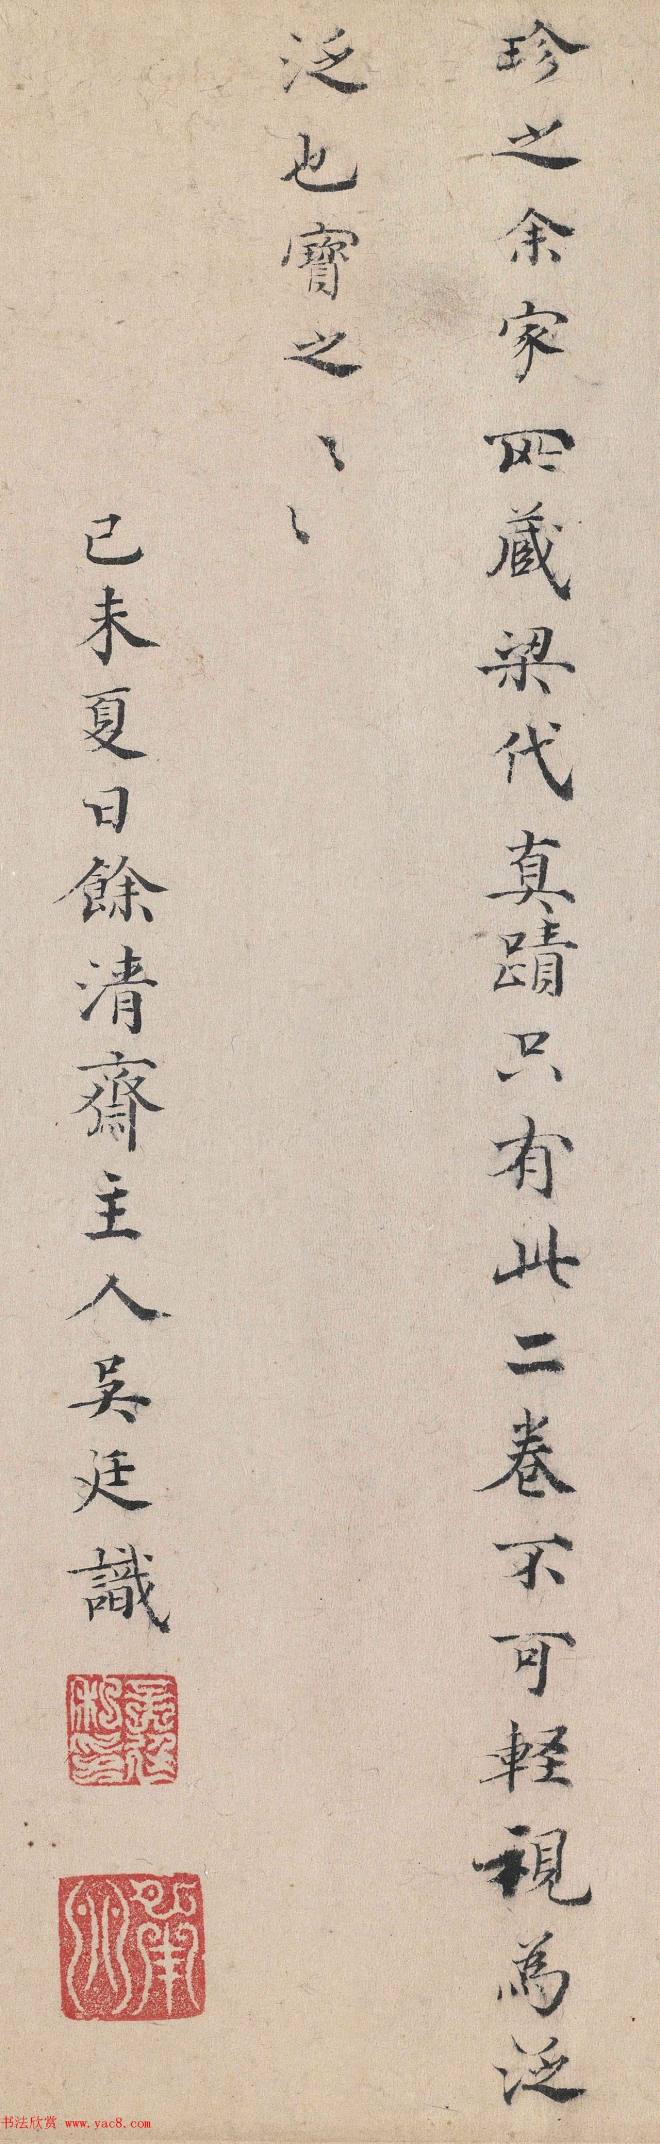 珍之余家所藏梁代真蹟只有此二卷不可軽視為泛
泛也寳之〻〻
己未夏日餘清齋主人吴廷識
书法欣赏 www.yac8.com